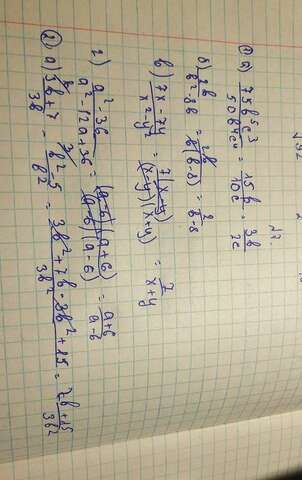 ① а) 75b⁵c³ / 50b⁴c⁴ = 15b / 10c = 3b / 2c
б) 2b / b²-8b = 2b / b(b-8) = 2 / b-8
в) 7x-7y / x²-y² = 7(x-y) / (x-y)(x+y) = 7 / x+y
г) a²-36 / a²-12a+36 = (a-6)(a+6) / (a-6)(a-6) = a+6 / a-6
② а) 3b+7 / 3b - b²-5 / b² = 3b²+7b-3b²+15 / 3b² = 7b+15 / 3b²